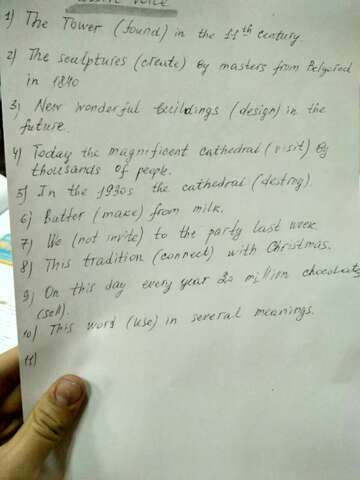 Passive Voice
1) The Tower (found) in the 11th century.
2) The sculptures (create) by masters from Belgorod
in 1840
3) New wonderful buildings (design) in the
future.
4) Today the magnificent cathedral (visit) by
thousands of people.
5) In the 1930s the cathedral (destroy).
6) Butter (make) from milk.
7) We (not invite) to the party last week.
8) This tradition (connect) with Christmas.
9) On this day every year 20 million chocolates
(sell).
10) This word (use) in several meanings.
11)